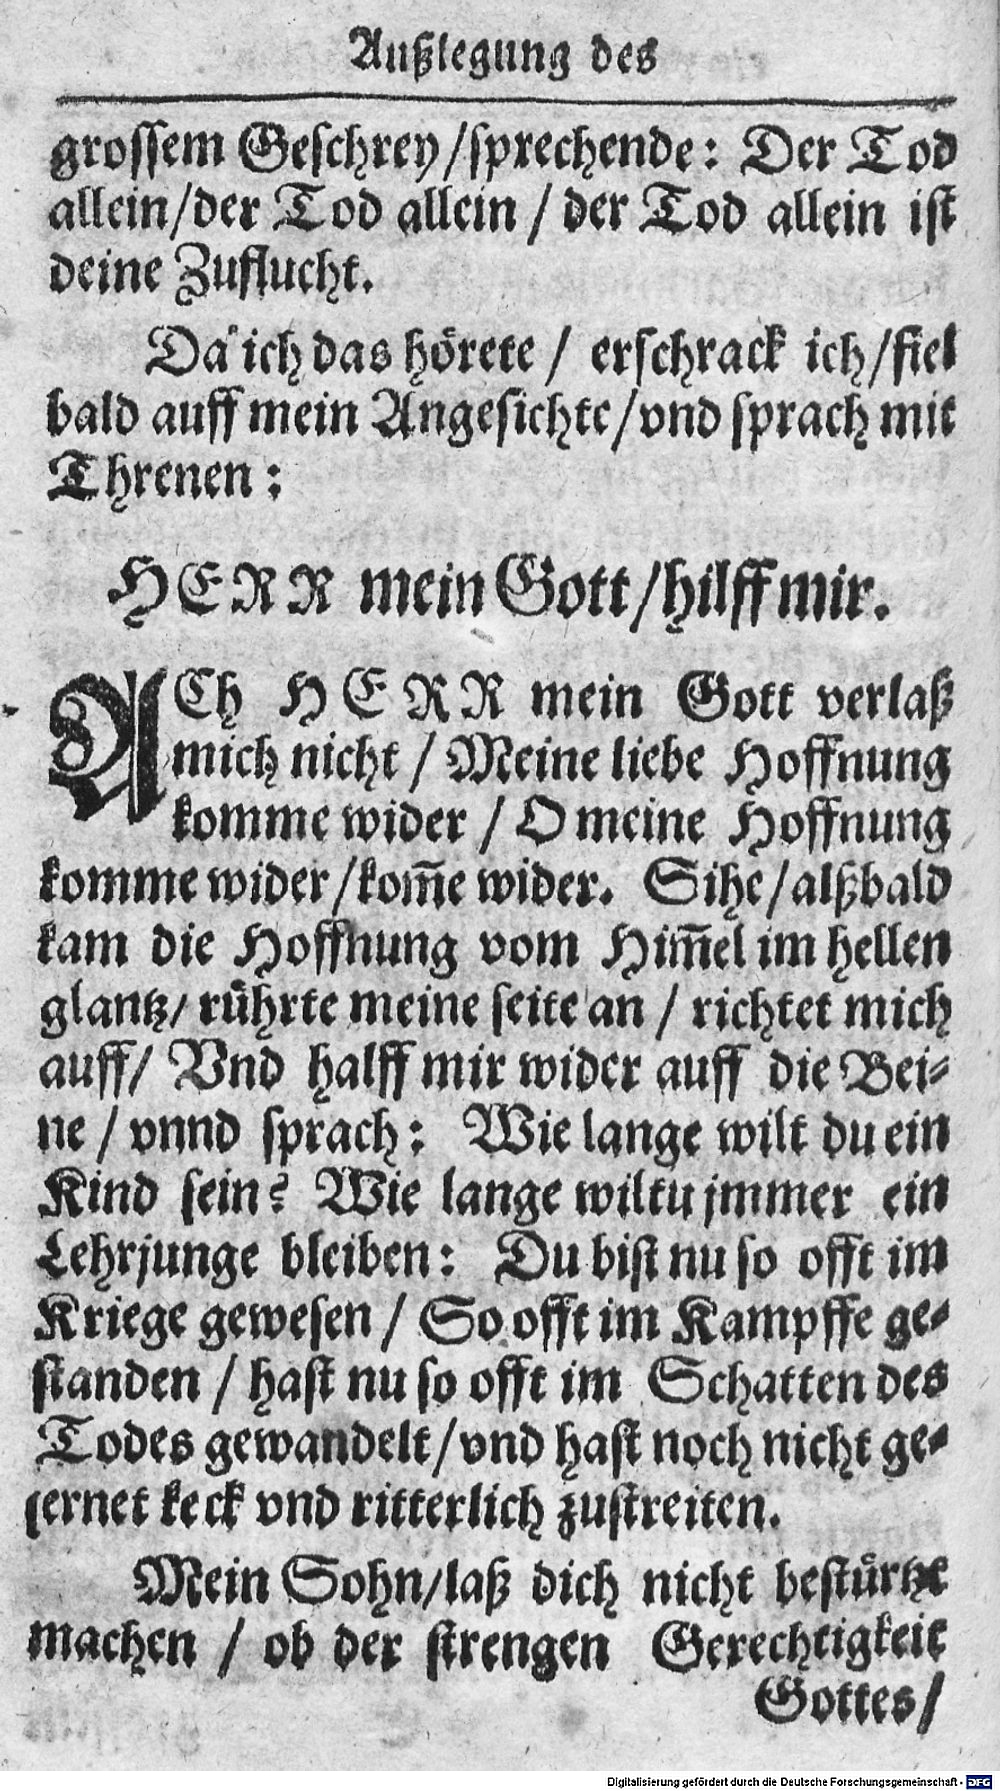 Außlegung des
grossem Geschrey/sprechende: Der Tod
allein/der Tod allein / der Tod allein ist
deine Zuflucht.
Da ich das hörete / erschrack ich/fiel
bald auff mein Angesichte/vnd sprach mit
Threnen:
HERR mein Gott/hilff mir.
ACh HERR mein Gott verlaß
mich nicht / Meine liebe Hoffnung
komme wider / O meine Hoffnung
komme wider/kom̃e wider. Sihe/alßbald
kam die Hoffnung vom Him̃el im hellen
glantz/ rührte meine seite an / richtet mich
auff/ Vnd halff mir wider auff die Bei-
ne / vnnd sprach: Wie lange wilt du ein
Kind sein? Wie lange wiltu jmmer ein
Lehrjunge bleiben: Du bist nu so offt im
Kriege gewesen / So offt im Kampffe ge-
standen / hast nu so offt im Schatten des
Todes gewandelt/vnd hast noch nicht ge-
lernet keck vnd ritterlich zustreiten.
Mein Sohn/laß dich nicht bestürtzt
machen / ob der strengen Gerechtigkeit
Gottes/
Digitalisierung gefördert durch die Deutsche Forschungsgemeinschaft - DFG